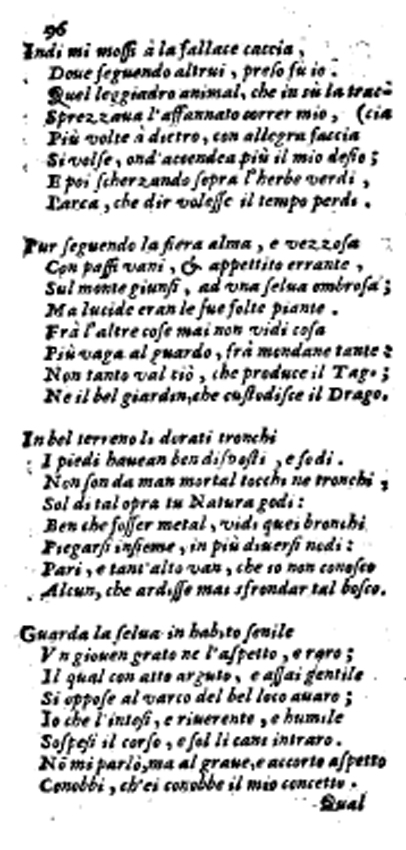 96
Indi mi mossi à la fallace caccia,
Doue seguendo altrui, preso fù io.
Quel leggiadro animal, che in sù la trac-
Sprezzaua l'affannato correr mio, (cia
Più volte à dietro, con allegra faccia
Si volse, ond'accendea più il mio desio;
E poi scherzando sopra l'herbe verdi,
Parea, che dir volesse il tempo perdi.
Pur seguendo la fiera alma, e vezzosa
Con passi vani, & appettito errante,
Sul monte giunsi, ad vna selua ombrosa;
Ma lucide eran le sue folte piante.
Frà l'altre cose mai non vidi cosa
Più vaga al guardo, frà mondane tante:
Non tanto val ciò, che produce il Tago;
Ne il bel giardin, che custodisce il Drago.
In bel terreno li dorati tronchi
I piedi hauean ben disposti, e sodi.
Non son da man mortal tocchi ne tronchi,
Sol di tal opra tu Natura godi:
Ben che fosser metal, vidi quei bronchi
Piegarsi insieme, in più diuersi nodi:
Pari, e tant'alto van, che io non conosco
Alcun, che ardisse mai sfrondar tal bosco.
Guarda la selua in habito senile
Vn giouen grato ne l'aspetto, e raro;
Il qual con atto arguto, e assai gentile
Si oppose al varco del bel loco auaro;
Io che l'intesi, e riuerente, e humile
Sospesi il corso, e sol li cani intraro.
Nō mi parlò, ma al graue, e accorto aspetto
Conobbi, ch'ei conobbe il mio concetto.
Qual